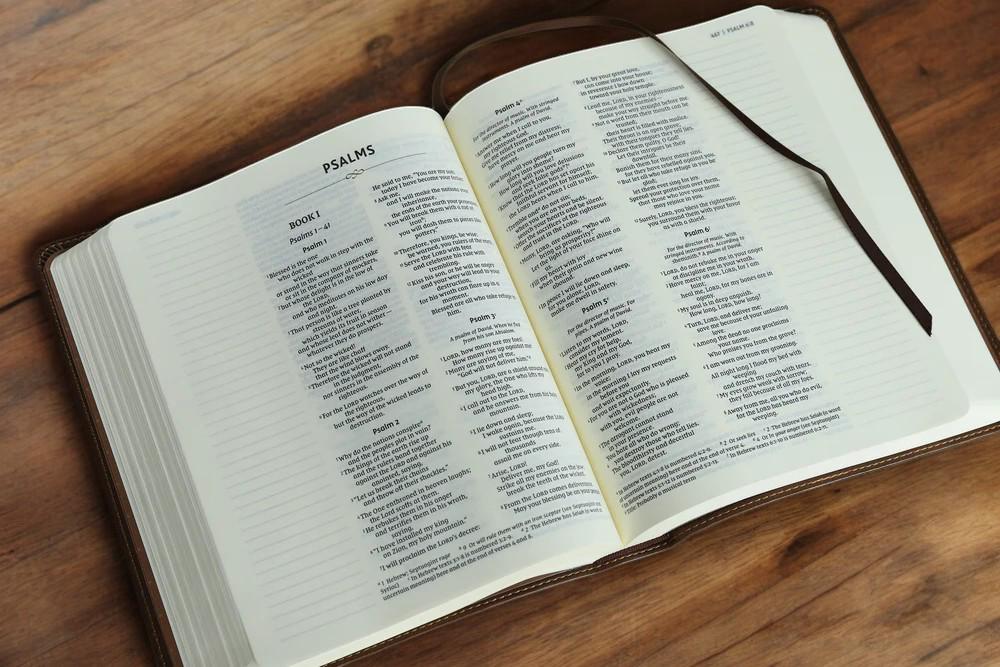 PSALMS
BOOK I
Psalms 1–41
Psalm 1
¹Blessed is the one
who does not walk in step with the
wicked
or stand in the way that sinners take
or sit in the company of mockers,
²but whose delight is in the law of
the LORD,
and who meditates on his law day
and night.
³That person is like a tree planted by
streams of water,
which yields its fruit in season
and whose leaf does not wither—
whatever they do prospers.
⁴Not so the wicked!
They are like chaff
that the wind blows away.
⁵Therefore the wicked will not stand
in the judgment,
nor sinners in the assembly of the
righteous.
⁶For the LORD watches over the way of
the righteous,
but the way of the wicked leads to
destruction.
Psalm 2
¹Why do the nations conspire
and the peoples plot in vain?
²The kings of the earth rise up
and the rulers band together
against the LORD and against his
anointed, saying,
³"Let us break their chains
and throw off their shackles."
⁴The One enthroned in heaven laughs;
the Lord scoffs at them.
⁵He rebukes them in his anger
and terrifies them in his wrath,
saying,
⁶"I have installed my king
on Zion, my holy mountain."
⁷I will proclaim the LORD's decree:
He said to me, "You are my son;
today I have become your father.
⁸Ask me,
and I will make the nations your
inheritance,
the ends of the earth your possession.
⁹You will break them with a rod of
iron;
you will dash them to pieces like
pottery."
¹⁰Therefore, you kings, be wise;
be warned, you rulers of the earth.
¹¹Serve the LORD with fear
and celebrate his rule with
trembling.
¹²Kiss his son, or he will be angry
and your way will lead to your
destruction,
for his wrath can flare up in a
moment.
Blessed are all who take refuge in
him.
Psalm 3
A psalm of David. When he fled
from his son Absalom.
¹LORD, how many are my foes!
How many rise up against me!
²Many are saying of me,
"God will not deliver him."
³But you, LORD, are a shield around me,
my glory, the One who lifts my
head high.
⁴I call out to the LORD,
and he answers me from his holy
mountain.
⁵I lie down and sleep;
I wake again, because the LORD
sustains me.
⁶I will not fear though tens of
thousands
assail me on every side.
⁷Arise, LORD!
Deliver me, my God!
Strike all my enemies on the jaw;
break the teeth of the wicked.
⁸From the LORD comes deliverance.
May your blessing be on your people.
1 Hebrew; Septuagint rage
9 Or will rule them with an iron scepter (see Septuagint and
Syriac) In Hebrew texts 3:1-8 is numbered 3:2-9. 2 The Hebrew has Selah (a word of
uncertain meaning) here and at the end of verses 4 and 8.
447 | PSALM 6:8
Psalm 4
For the director of music. With stringed
instruments. A psalm of David.
¹Answer me when I call to you,
my righteous God.
Give me relief from my distress;
have mercy on me and hear my
prayer.
²How long will you people turn my
glory into shame?
How long will you love delusions
and seek false gods?
³Know that the LORD has set apart his
faithful servant for himself;
the LORD hears when I call to him.
⁴Tremble and do not sin;
when you are on your beds,
search your hearts and be silent.
⁵Offer the sacrifices of the righteous
and trust in the LORD.
⁶Many, LORD, are asking, "Who will
bring us prosperity?"
Let the light of your face shine on
us.
⁷Fill my heart with joy
when their grain and new wine
abound.
⁸In peace I will lie down and sleep,
for you alone, LORD,
make me dwell in safety.
Psalm 5
For the director of music. For
pipes. A psalm of David.
¹Listen to my words, LORD,
consider my lament.
²Hear my cry for help,
my King and my God,
for to you I pray.
³In the morning, LORD, you hear my
voice;
in the morning I lay my requests
before you
and wait expectantly.
⁴For you are not a God who is pleased
with wickedness;
with you, evil people are not
welcome.
⁵The arrogant cannot stand
in your presence.
You hate all who do wrong;
⁶you destroy those who tell lies.
The bloodthirsty and deceitful
you, LORD, detest.
⁷But I, by your great love,
can come into your house;
in reverence I bow down
toward your holy temple.
⁸Lead me, LORD, in your righteousness
because of my enemies—
make your way straight before me.
⁹Not a word from their mouth can be
trusted;
their heart is filled with malice.
Their throat is an open grave;
with their tongues they tell lies.
¹⁰Declare them guilty, O God!
Let their intrigues be their
downfall.
Banish them for their many sins,
for they have rebelled against you.
¹¹But let all who take refuge in you be
glad;
let them ever sing for joy.
Spread your protection over them,
that those who love your name
may rejoice in you.
¹²Surely, LORD, you bless the righteous;
you surround them with your favor
as with a shield.
Psalm 6
For the director of music. With
stringed instruments. According to
sheminith. A psalm of David.
¹LORD, do not rebuke me in your anger
or discipline me in your wrath.
²Have mercy on me, LORD, for I am
faint;
heal me, LORD, for my bones are in
agony.
³My soul is in deep anguish.
How long, LORD, how long?
⁴Turn, LORD, and deliver me;
save me because of your unfailing
love.
⁵Among the dead no one proclaims
your name.
Who praises you from the grave?
⁶I am worn out from my groaning.
All night long I flood my bed with
weeping
and drench my couch with tears.
⁷My eyes grow weak with sorrow;
they fail because of all my foes.
⁸Away from me, all you who do evil,
for the LORD has heard my
weeping.
In Hebrew texts 4:1-8 is numbered 4:2-9. 2 Or seek lies 2 The Hebrew has Selah (a word
of uncertain meaning) here and at the end of verse 4. 4 Or In your anger (see Septuagint)
In Hebrew texts 5:1-12 is numbered 5:2-13. In Hebrew texts 6:1-10 is numbered 6:2-11.
Title: Probably a musical term